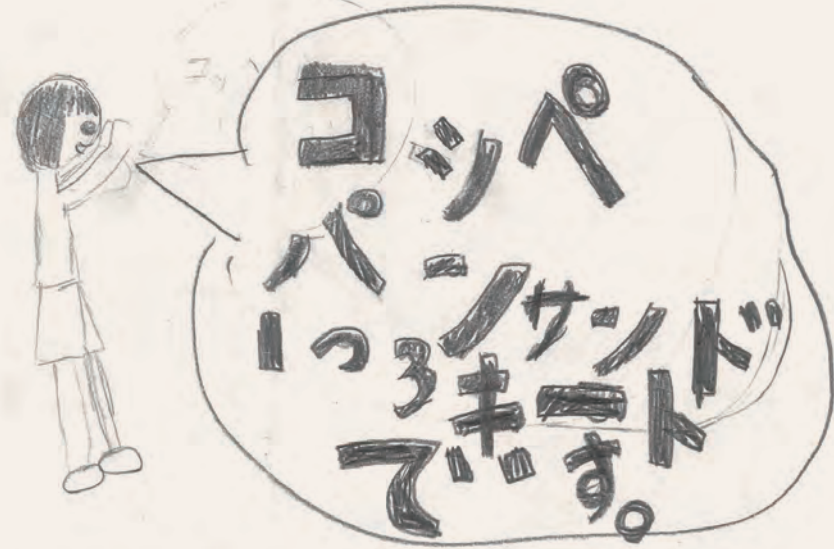 コッペ
パンサンド
1つ3キート
です。